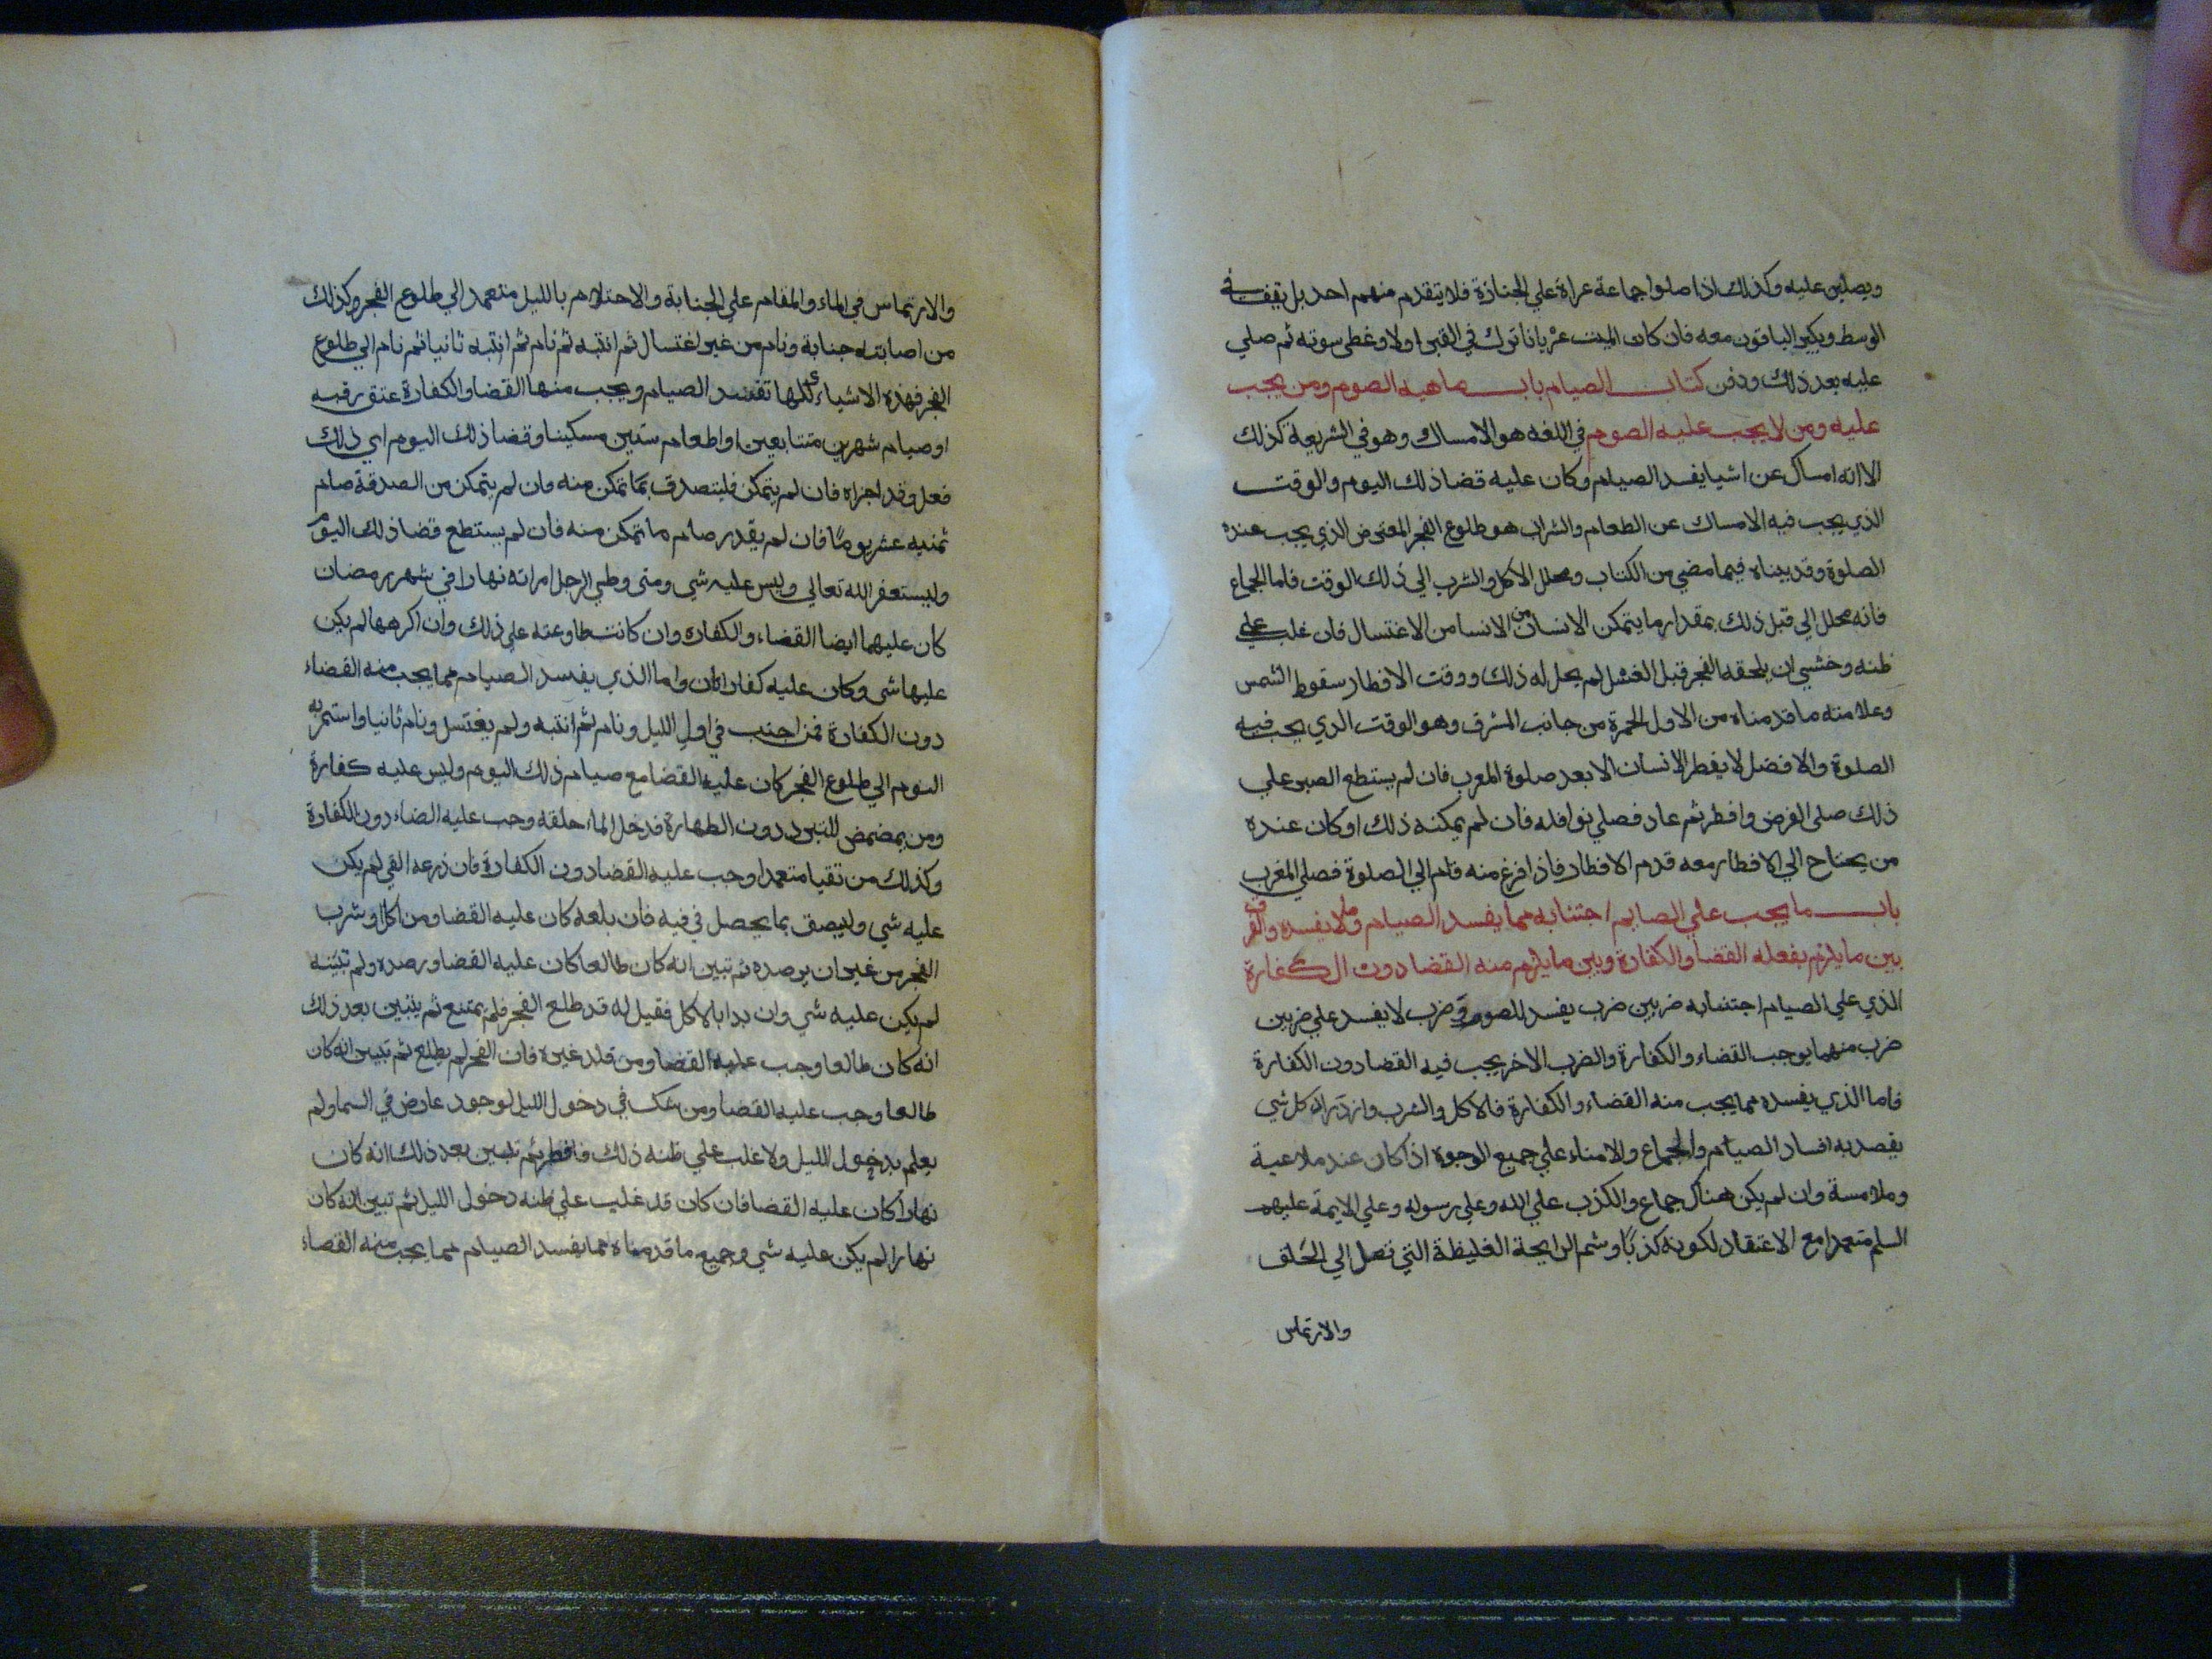 ويصلين عليه وكذلك اذا صلوا جماعة عراة علي الجنازة فلا يتقدم منهم احد بل يقف في
الوسط ويكبر الباقون معه فان كان الميت عريانا ترك في القبر اولا وغطي سوته ثم صلي
عليه بعد ذلك ودفن كتاب الصيام باب ماهية الصوم ومن يجب
عليه ومن لا يجب عليه الصوم في اللغه هو الامساك وهو في الشريعة كذلك
الا انه امساك عن اشيا يفسد الصيام وكان عليه قضا ذلك اليوم والوقت
الذي يجب فيه الامساك عن الطعام والشراب هو طلوع الفجر المعترض الذي يجب عنده
الصلوة وقد بيناه فيما مضي من الكتاب ومحلل الاكل والشرب الي ذلك الوقت فاما الجماع
فانه محلل الي قبل ذلك بمقدار ما يتمكن الانسان من الانسا من الاغتسال فان غلب علي
ظنه وخشي ان يلحقه الفجر قبل الغسل لم يحل له ذلك ووقت الافطار سقوط الشمس
وعلامته ما قدمناه من الاول الحمرة من جانب المشرق وهو الوقت الذي يجب فيه
الصلوة والافضل لا يفطر الانسان الا بعد صلوة المغرب فان لم يستطع الصبر علي
ذلك صلي الفرض وافطر ثم عاد فصلي نوافله فان لم يمكنه ذلك او كان عنده
من يحتاج الي الافطار معه قدم الافطار فاذا فرغ منه قام الي الصلوة فصلي المغرب
باب ما يجب علي الصايم اجتنابه مما يفسد الصيام وما لا يفسده والفرق
بين ما يلزم بفعله القضا والكفارة وبين ما يلزم منه القضا دون الكفارة
الذي علي الصيام اجتنابه ضربين ضرب يفسد الصوم وضرب لا يفسد علي ضربين
ضرب منهما يوجب القضاء والكفارة والضرب الاخر يجب فيه القضا دون الكفارة
فاما الذي يفسده مما يجب منه القضاء والكفارة فالاكل والشرب وازدراد كل شي
يقصد به افساد الصيام والجماع والامناء علي جميع الوجوه اذا كان عند ملاعبة
وملامسة وان لم يكن هناك جماع والكذب علي الله وعلي رسوله وعلي الايمة عليهم
السلم متعمدا مع الاعتقاد لكونه كذبًا وشم الرايحة الغليظة التي تصل الي الحلق
والارتماس
والارتماس في الماء والمقام علي الجنابة والاحتلام بالليل متعمدا الي طلوع الفجر وكذلك
من اصابته جنابة ونام من غير اغتسال ثم انتبه ثم نام ثم انتبه ثانيا ثم نام الي طلوع
الفجر فهذه الاشياء كلها تفسد الصيام ويجب منها القضا والكفارة عتق رقبه
او صيام شهرين متتابعين او اطعام ستين مسكينا وقضا ذلك اليوم اي ذلك
فعل وقد اجزاه فان لم يتمكن فليتصدق بما تمكن منه فان لم يتمكن من الصدقة صام
ثمنيه عشر يومًا فان لم يقدر صام ما تمكن منه فان لم يستطع قضا ذلك اليوم
وليستغفر الله تعالي وليس عليه شي ومتي وطي الرجل امراته نهارا في شهر رمضان
كان عليهما ايضا القضاء والكفارة وان كانت طاوعته علي ذلك وان اكرهها لم يكن
عليها شي وكان عليه كفارتان واما الذي يفسد الصيام مما يجب منه القضاء
دون الكفارة فمن اجنب في اول الليل ونام ثم انتبه ولم يغتسل ونام ثانيا واستمر به
النوم الي طلوع الفجر كان عليه القضا مع صيام ذلك اليوم وليس عليه كفارة
ومن يمضمض للتبرد دون الطهارة فدخل الماء حلقه وجب عليه القضاء دون الكفارة
وكذلك من تقيا متعمدا وجب عليه القضا دون الكفارة فان ذرعه القي لم يكن
عليه شي وليبصق بما يحصل في فيه فان بلعه كان عليه القضا ومن اكل او شرب
الفجر من غير ان يرصده ثم تبين انه كان طالعا كان عليه القضا ورصده ولم تبينه
لم يكن عليه شي وان بدا بالاكل فقيل له قد طلع الفجر فلم يمتنع ثم يتبين بعد ذلك
انه كان طالعا وجب عليه القضا ومن قلد غيره فان الفجر لم يطلع ثم تبين انه كان
طالعا وجب عليه القضا ومن شك في دخول الليل لوجود عارض في السما ولم
يعلم بدخول الليل ولا غلب علي ظنه ذلك فافطر ثم تبين بعد ذلك انه كان
نهارًا كان عليه القضا فان كان قد غلب علي ظنه دخول الليل ثم تبين انه كان
نهارا لم يكن عليه شي وجميع ما قدمناه مما يفسد الصيام مما يجب منه القضاء